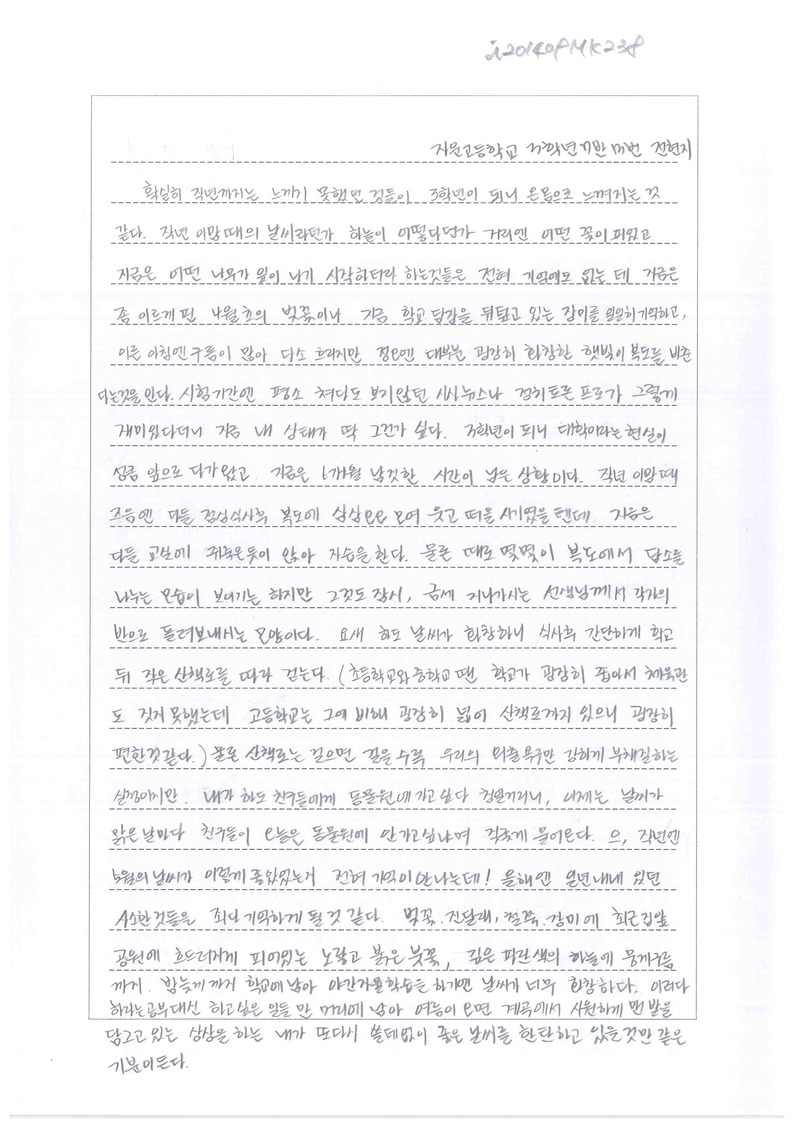 i201409MK238
지운고등학교 3학년 7반 13번 전현지
확실히 작년까지는 느끼지 못했던 것들이 3학년이 되니 온몸으로 느껴지는 것
같다. 작년 이맘때의 날씨라던가 하늘이 어떻다던가 거리엔 어떤 꽃이 피었고
지금은 어떤 나무가 잎이 나기 시작하더라 하는것들은 전혀 기억에도 없는 데 지금은
좀 이르게 핀 4월초의 벚꽃이나 지금 학교 담장을 뒤덮고 있는 장미를 일일히 기억하고,
이른 아침엔 구름이 많아 다소 흐리지만 정오엔 대부분 굉장히 화창한 햇빛이 복도를 비춘
다는것을 안다. 시험기간엔 평소 쳐다도 보기않던 시사뉴스나 정치토론 프로가 그렇게
재미있다더니 지금 내 상태가 딱 그건가 싶다. 3학년이 되니 대학이라는 현실이
성큼 앞으로 다가왔고 지금은 6개월 남짓한 시간이 남은 상황이다. 작년 이맘때
즈음엔 다들 점심식사후 복도에 삼삼오오 모여 웃고 떠들 시기였을텐데 지금은
다들 교실에 쥐죽은듯이 앉아 자습을 한다. 물론 때로 몇몇이 복도에서 담소를
나누는 모습이 보여기는 하지만 그것도 잠시, 금세 지나가시는 선생님께서 각자의
반으로 돌려보내시는 모양이다. 요새 하도 날씨가 화창하니 식사후 간단하게 학교
뒤 작은 산책로를 따라 걷는다. (초등학교와 중학교 땐 학교가 굉장히 좁아서 체육관
도 짓지 못했는데 고등학교는 그에 비해 굉장히 넓어 산책로까지 있으니 굉장히
편한것 같다.) 물론 산책로는 걸으면 걸을수록 우리의 외출욕구만 강하게 부채질하는
실정이지만. 내가 하도 친구들에게 동물원에 가고싶다 칭얼거리니, 이제는 날씨가
맑은 날마다 친구들이 오늘은 동물원에 안가고싶냐며 먼저 물어온다. 으, 작년엔
5월의 날씨가 이렇게 좋았었는지 전혀 기억이 안나는데! 올해엔 일년내내 있던
사소한것들을 죄다 기억하게 될 것 같다. 벚꽃, 진달래, 철쭉, 장미에 최근 집앞
공원에 흐드러지게 피어있는 노랗고 붉은 붓꽃, 짙은 파란색의 하늘에 뭉게구름
까지. 밤늦게 까지 학교에 남아 야간자율학습을 하기엔 날씨가 너무 화창하다. 이러다
하라는공부대신 하고싶은 일들 만 머리에 남아 여름이 오면 계곡에서 시원하게 맨발을
담그고 있는 상상을 하는 내가 또다시 쓸데없이 좋은 날씨를 한탄하고 있을것만 같은
기분이든다.